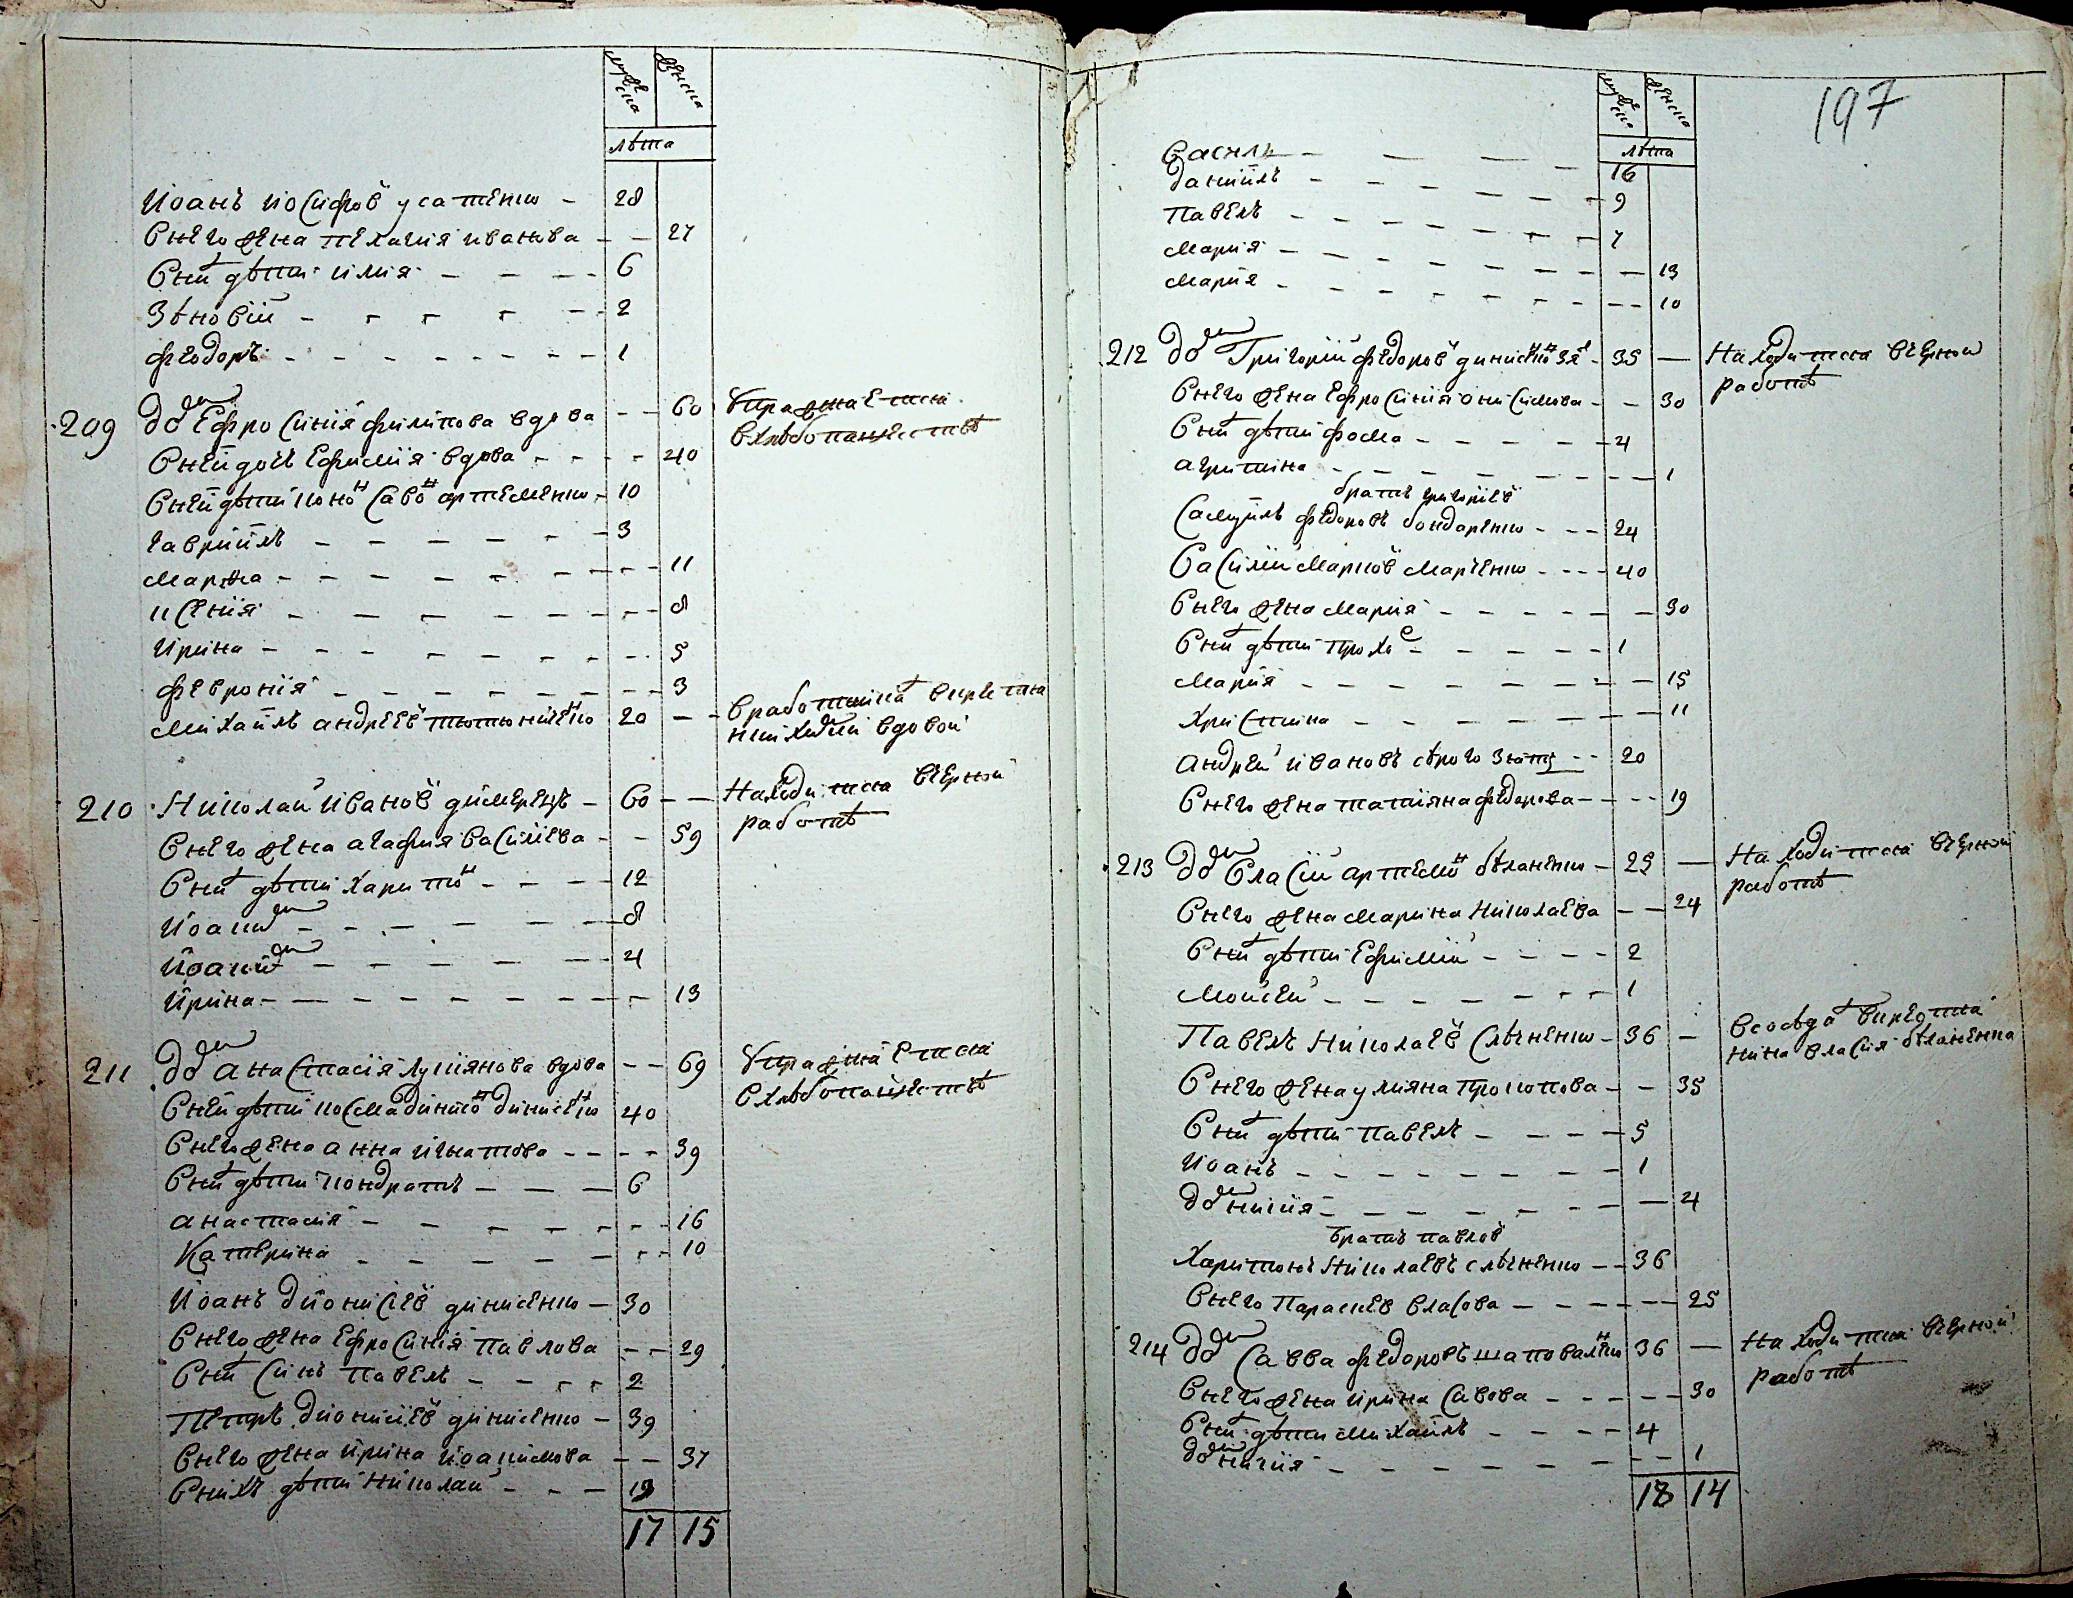 мужеска женска
лѣта
Иоанъ иосифовъ усатенко 28
Снего жена пелагия иванова 27
Сних дѣти илия 6
Зѣновий 2
феодоръ 1
209 дом Ефросиния филипова вдова 60 Упражнается
вхлѣбопашествѣ
Снеи дочь Ефимия вдова 40
Снеи дѣти коно Савон артеменко 10
гавриилъ 3
марфа 11
ксения 8
ирина 5
феврония 3
михаилъ андреев тютюниченко 20 вработниках
вдовой
210 Николай иванов 60 Находится вчерной
работѣ
Снего жена агафия василиева 59
Сних дѣти харитон 12
Иоаким 8
Иоаким 4
ирина 13
211 дом анастасия лукиянова вдова 69 Упражнается
вхлѣбопашествѣ
Снеи дѣти косма динисенко 40
Снего жена анна игнатова 39
Сних дѣти кондратъ 6
анастасия 16
Катерина 10
Иоанъ дионисиев динисенко 30
Снего жена Ефросиния павлова 29
Сних синъ павелъ 2
Петръ дионисиев динисенко 39
Снего жена ирина иоакимова 37
Снихъ дѣти николай 13
17 15
197
мужеска женска
лѣта
василь 16
даниилъ 9
павелъ 7
мария 13
мария 10
212 дом Григорий федоров 35 Находится вчерной
работѣ
Снего жена Ефросиния онисимова 30
Сних дѣти фома 4
агрипина 1
братъ григориев
Самуилъ федоровъ бондаренко 24
Василий марков марченко 40
Снего жена мария 30
Сних дѣти прохо 1
мария 15
христина 11
андрей ивановъ 20
Снего жена татияна федорова 19
213 дом Власий артемон бѣланенко 25 Находится вчерной
работѣ
Снего жена марина николаева 24
Сних дѣти Ефимий 2
моисей 1
Павелъ николаев слѣченко 36 всосѣдах
власия бѣланенка
Снего жена улияна прокопова 35
Сних дѣти павелъ 5
Иоанъ 1
домникия 4
братъ павлов
Харитонъ николаевъ слѣченко 36
Снего параскев власова 25
214 дом Савва федоровъ шаповаленко 36 Находится вчерной
работѣ
Снего жена ирина савова 30
Сних дѣти михаилъ 4
домникия 1
18 14